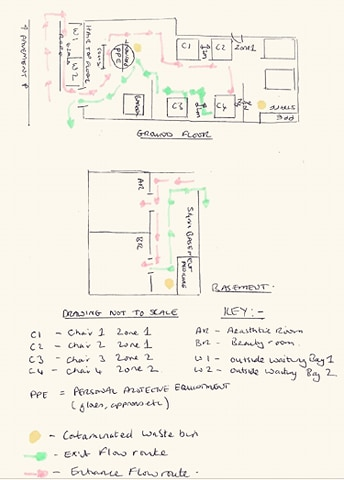 PAVEMENT
W1
W2
PPE
C1
C2
Zone 1
C3
C4
PPE
GROUND FLOOR
AR
BR
BASEMENT
BASEMENT.
DRAWING NOT TO SCALE
C1 - Chair 1 Zone 1
C2 - Chair 2 Zone 1
C3 - Chair 3 Zone 2
C4 - Chair 4 Zone 2
PPE = PERSONAL PROTECTIVE EQUIPMENT
KEY:-
AR - Room
BR - Beauty room.
W1 - outside Waiting Bay 1
W2 - outside Waiting Bay 2
- Contaminated Waste bin
- Exit Flow route
- Entrance Flow route.